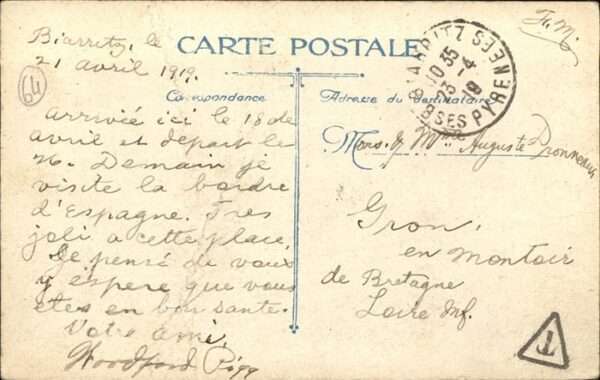 F. M.
CARTE POSTALE
Correspondance
Adresse du destinataire
BIARRITZ
10 35
23 -4
19
BSES PYRENEES
64
Biarritz, le
21 avril 1919.
arrivée ici le 18 de
avril et depart le
26. Demain je
visite la bordre
d'Espagne. Tres
joli a cette place.
Je pensé de vous
y espere que vous
etes en bon sante.
Votre ami,
Woodford
Mons. & Mme Auguste
Gron.
en Montoir
de Bretagne
Loire Inf.
T